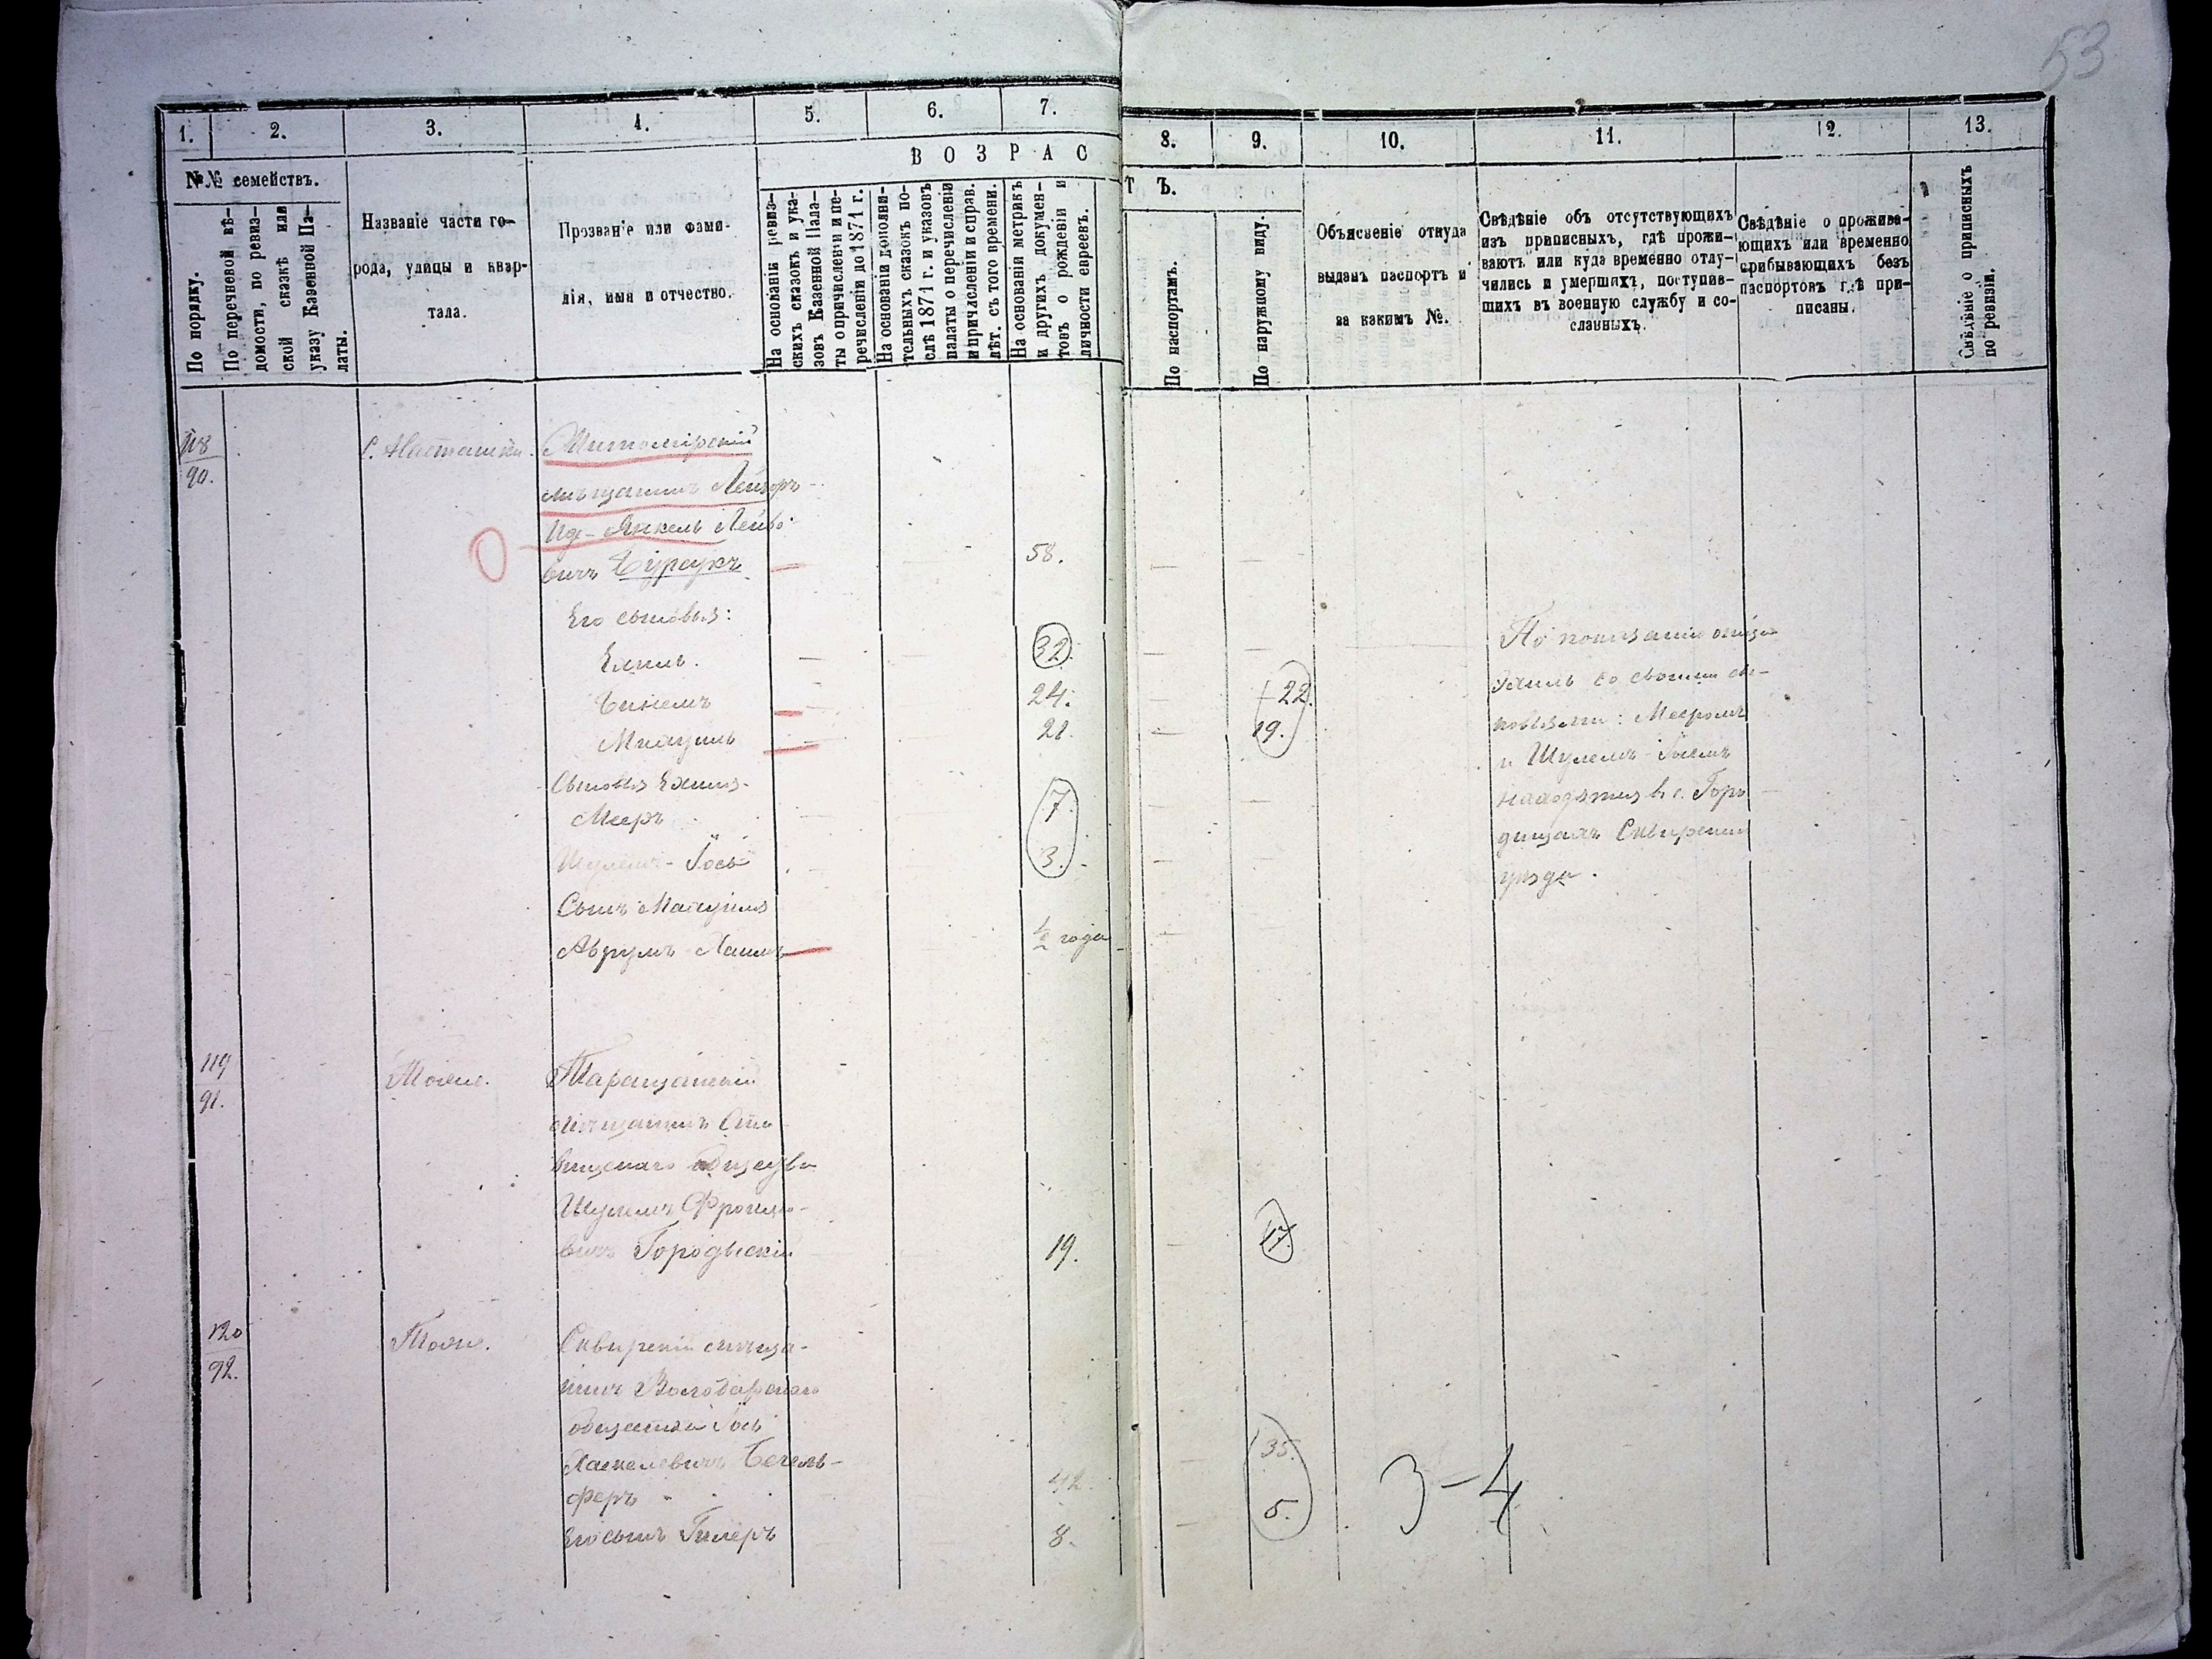 53
1. 2. 3. 4. 5. 6. 7. 8. 9. 10. 11. 12. 13.
№№ семействъ.
По порядку.
По перечневой вѣ-
домости, по ревиз-
ской сказкѣ или
указу Казенной Па-
латы.
Названіе части го-
рода, улицы и квар-
тала.
Прозваніе или фами-
лія, имя и отчество.
ВОЗРАС
ТЪ.
На основаніи ревиз-
скихъ сказокъ и ука-
зовъ Казенной Пала-
ты о причисленіи и пе-
речисленіи до 1871 г.
На основаніи дополни-
тельныхъ сказокъ по-
слѣ 1871 г. и указовъ
палаты о перечисленіи
и причисленіи и справ.
лѣт. съ того времени.
На основаніи метрикъ
и другихъ докумен-
товъ о рожденіи и
личности евреевъ.
По паспортамъ.
По наружному виду.
Объясненіе откуда
выданъ паспортъ и
за какимъ №.
Свѣдѣніе объ отсутствующихъ
изъ приписныхъ, гдѣ прожи-
ваютъ или куда временно отлу-
чились и умершихъ, поступив-
щихъ въ военную службу и со-
сланныхъ.
Свѣдѣніе о прожива-
ющихъ или временно
прибывающихъ безъ
паспортовъ гдѣ при-
писаны.
Свѣдѣніе о приписныхъ
по ревизіи.
118
90.
С. Насташка.
Житомірскій
мѣщанинъ Лейзоръ
Иде-Янкель Лейбо-
вичъ 58.
Его сыновья:
Ехиль. 32.
24. 22.
21. 19.
Сыновья Ехиля
Мееръ 7.
Шулемъ-Іось 3.
Сынъ
Аврумъ-Хаимъ ½ года
По показанію отца
Ехиль со своими сы-
новьями: Мееромъ
и Шулемъ-Іосемъ
находятся въ с. Горо
дищахъ Сквирскаго
уѣзда.
119
91.
Тоже.
Таращанскій
мѣщанинъ Ста
вищскаго общества
Шулимъ Фроимо-
вичъ Городыскій 19. 17.
120
92.
Тоже.
Сквирскій мѣща-
нинъ Володарскаго
общества Іось
Хаскелевичъ
феръ 42. 35.
Его сынъ 8. 5.
3-4